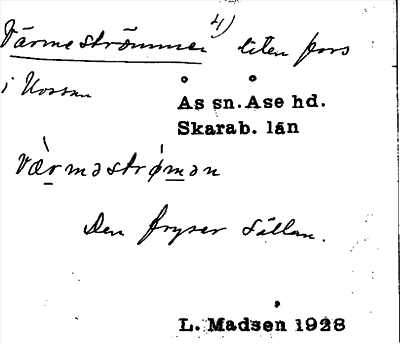 Värmeströmmen 4) liten fors
i Nossan
Ås sn. Åse hd.
Skarab. län
værməstrømən
Den fryser sällan.
L. Madsen 1928